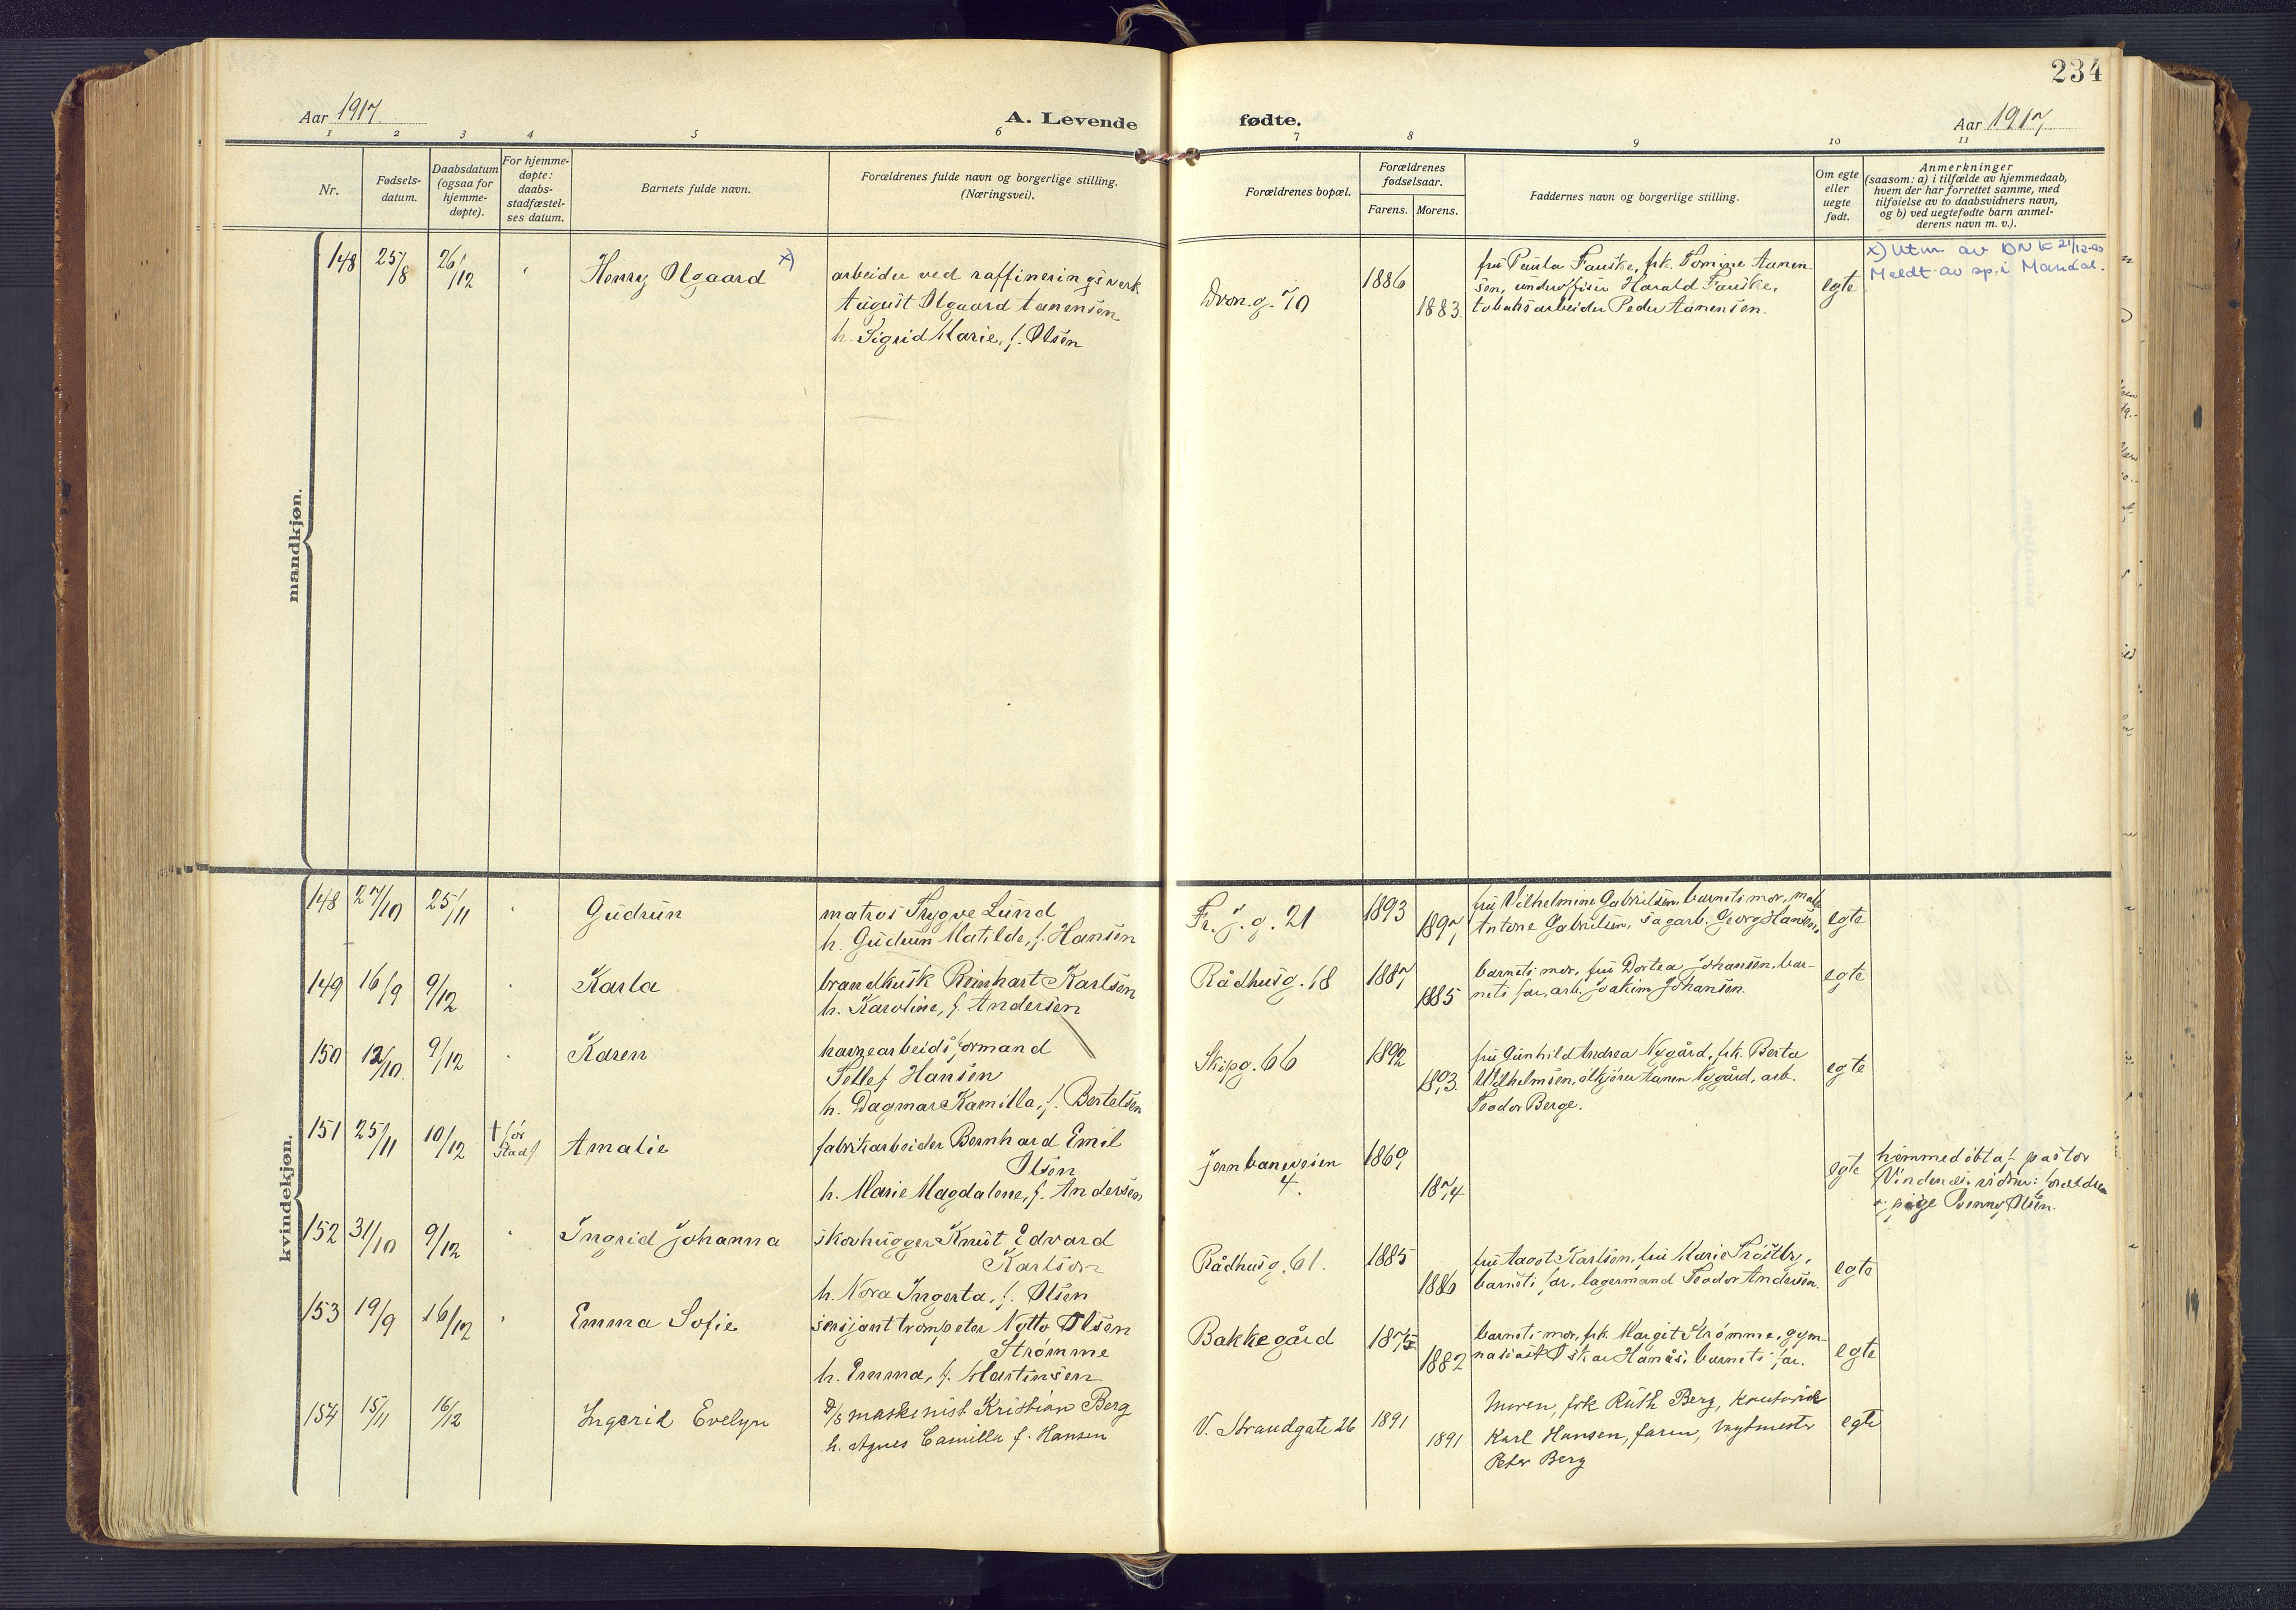 234
Aar 1917.
A. Levende
fødte.
Aar 1917.
1 2 3 4 5 6 7 8 9 10 11
Nr.
Fødsels-
datum.
Daabsdatum
(ogsaa for
hjemme-
døpte).
For hjemme-
døpte:
daabs-
stadfæstel-
ses datum.
Barnets fulde navn.
Forældrenes fulde navn og borgerlige stilling.
(Næringsvei).
Forældrenes bopæl.
Forældrenes
fødselsaar.
Farens. Morens.
Faddernes navn og borgerlige stilling.
Om egte
eller
uegte
født.
Anmerkninger
(saasom: a) i tilfælde av hjemmedaab,
hvem der har forrettet samme, med
tilføielse av to daabsvidners navn,
og b) ved uegtefødte barn anmel-
derens navn m. v.).
mandkjøn.
148 25/8 26/12 Henry Olgaard x)
arbeider ved raffineringsverk
August Olgaard Aanensen
h. Sigrid Marie, f. Olsen
Dron.g. 70
1886
1883.
fru Paula Fauske, frk. Tomine Aanen-
sen, underoffiser Harald Fauske,
tobaksarbeider Peder Aanensen.
egte
x) Utm. av DNK 21/12-90
Meldt av sp. i Mandal.
kvindekjøn.
148 27/10 25/11 Gudrun
matros Trygve Lund
h. Gudrun Matilde, f. Hansen
Fr. j. g. 21
1893
1897
fru Vilhelmine Gabrielsen, barnets mor,
Antone Gabrielsen, sagarb. Georg Hansen.
egte
149 16/9 9/12 Karla
brandkusk Reinhart Karlsen
h. Karoline, f. Andersen
Rådhusg. 18
1887
1885
barnets mor, fru Dortea Johansen, bar-
nets far, arb. Joakim Johansen.
egte
150 12/10 9/12 Karen
havnearbeidsformand
Tellef Hansen
h. Dagmar Kamilla, f. Bertelsen
Skipg. 66
1892
1893.
fru Gunhild Andrea Nygård, frk. Berta
Wilhelmsen, ølkjører Aanen Nygård, arb.
Teodor Berge.
egte
151 25/11 10/12 † før
stadf Amalie
fabrikarbeider Bernhard Emil
Olsen
h. Marie Magdalene, f. Andersen
Jernbaneveien
4.
1869
1874
egte
hjemmedøbt af pastor
Vindenes, vidner: forældre
pige Jenny Olsen.
152 31/10 9/12 Ingrid Johanna
skovhugger Knut Edvard
Karlson
h. Nora Ingerta, f. Olsen
Rådhusg. 61.
1885
1886
fru Aagot Karlsen, fru Marie Trøstby,
barnets far, lagermand Teodor Andersen.
egte
153 19/9 16/12 Emma Sofie
sersjanttrompeter Notto Olsen
Strømme
h. Emma, f. Martinsen
Bakkegård
1875
1882
barnets mor, frk. Margit Strømme, gym-
nasiast Oskar Hanås, barnets far.
egte
154 15/11 16/12 Ingerid Evelyn
D/S maskinist Kristian Berg
h. Agnes Camilla f. Hansen
V. Strandgate 26
1891
1891
Moren, frk Ruth Berg,
Karl Hansen, faren, vagtmester
Peter Berg
egte